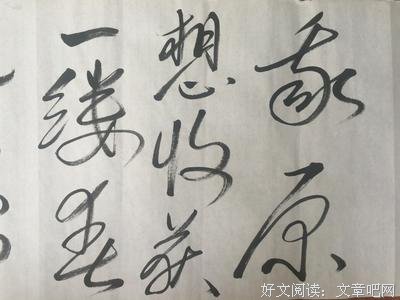 我原
想收获
一缕春
好文阅读：文章吧网